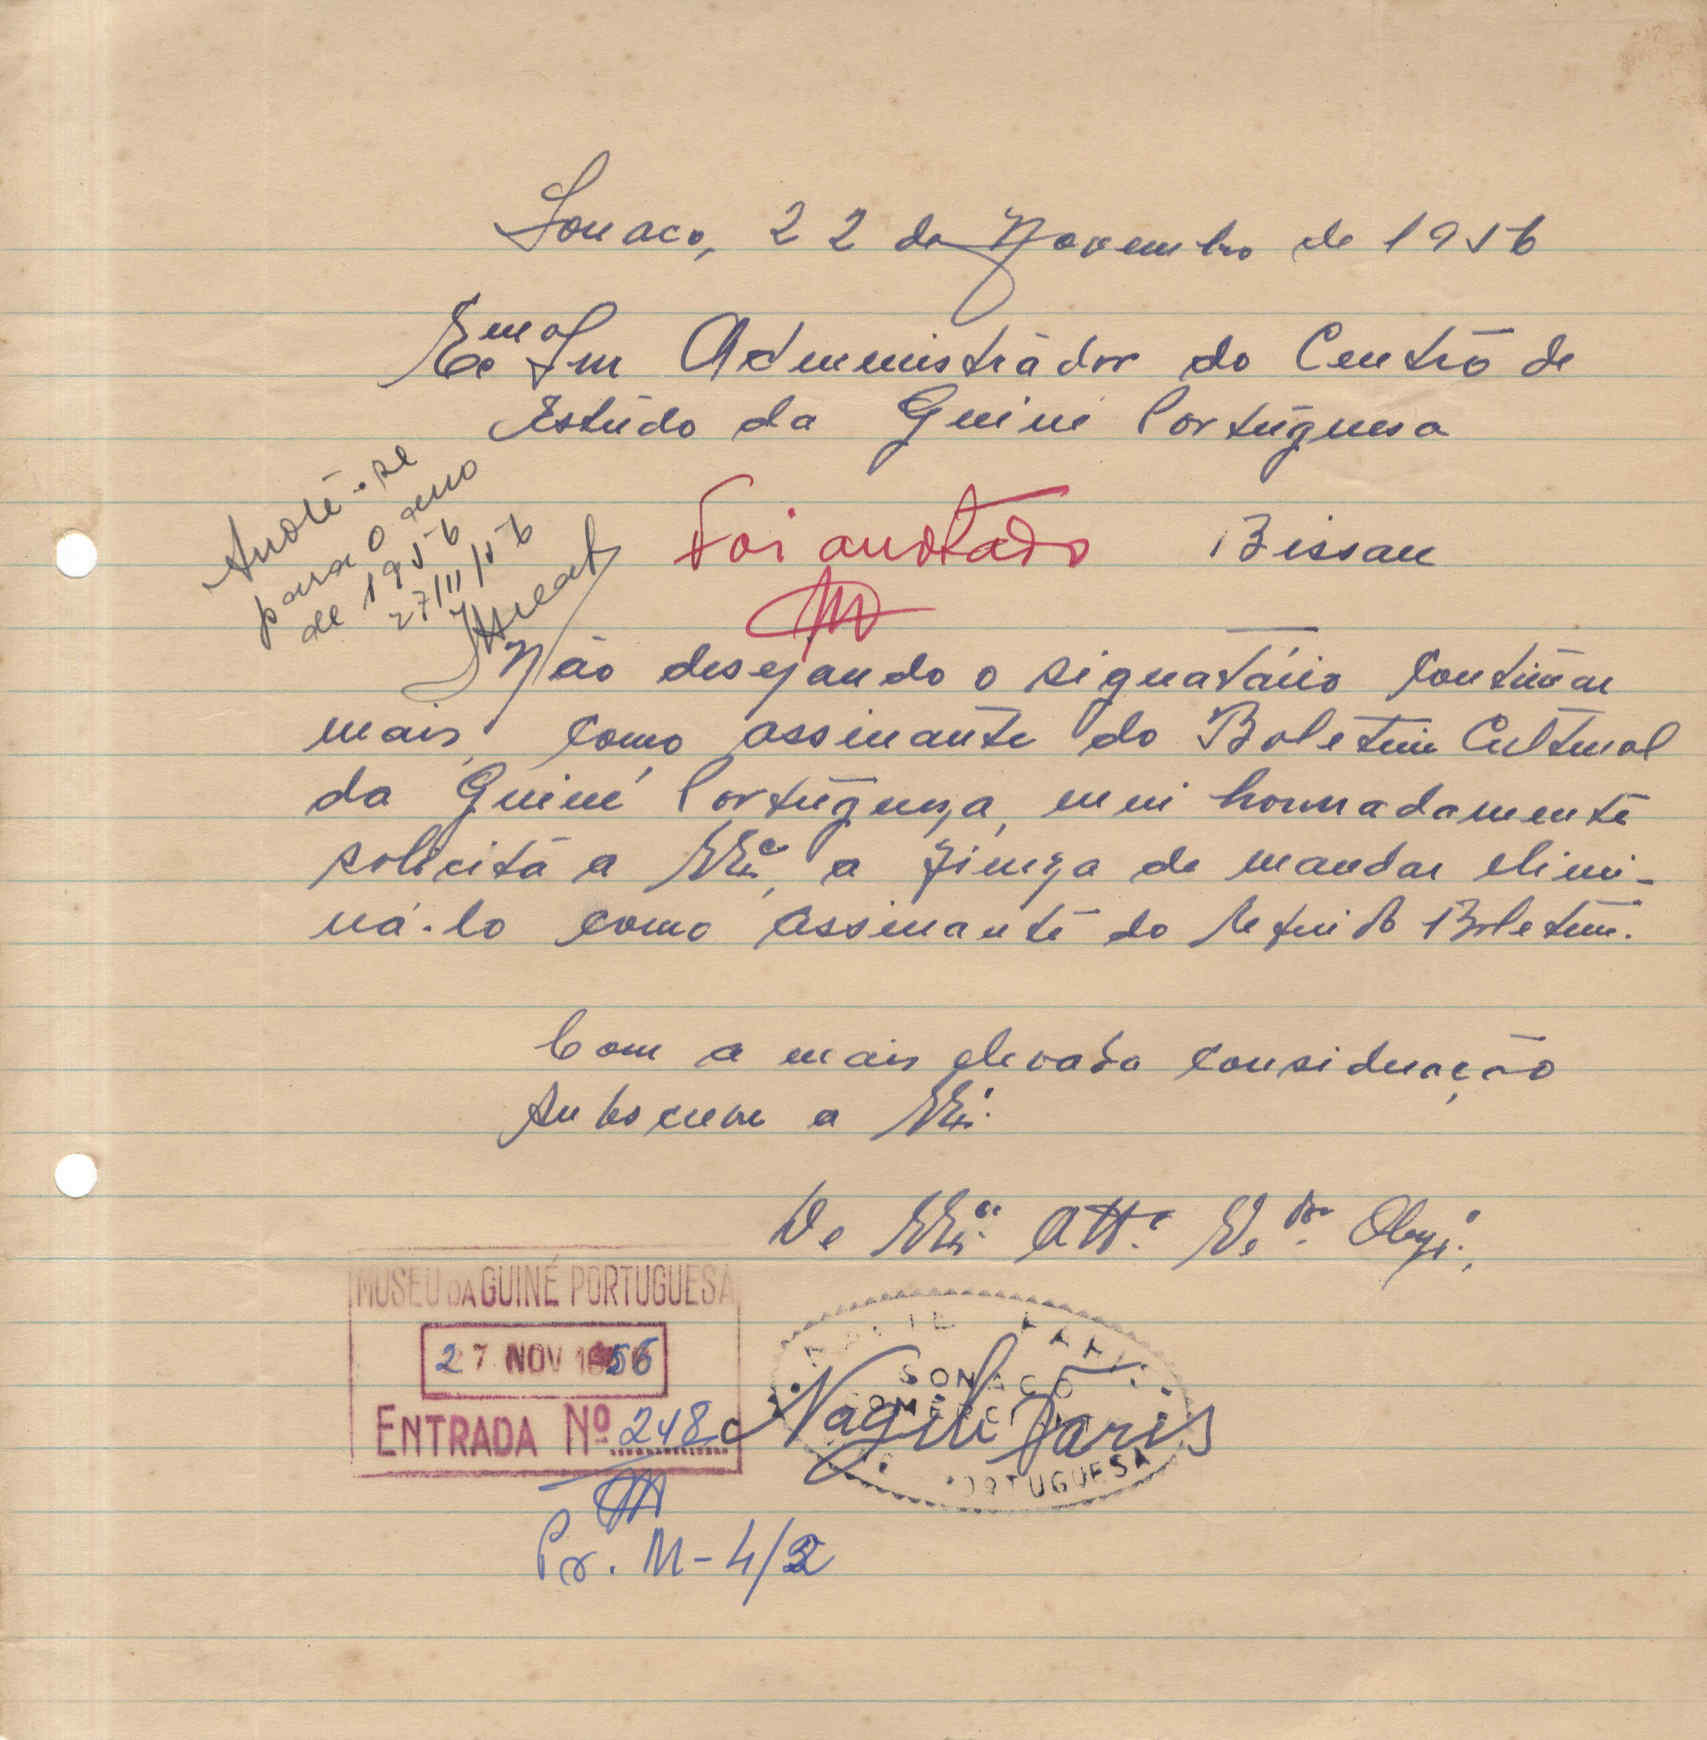 Sonaco, 22 de Novembro de 1956
Exmo Snr Administrador do Centro de
Estúdo da Guiné Portuguesa
Anote-se
para o ano
de 1956
27/11/56
Foi anotado
Bissau
Não desejando o signatário continuar
mais, como assinante do Boletim Cultural
da Guiné Portugueza, mui honradamente
solicita a VExcia, a fineza de mandar elimi-
ná-lo como assinante do referido Boletim.
Com a mais elevada consideração
subscreve a VExa.
De VExcia. Attº. Vedor. Obgº.,
MUSEU DA GUINÉ PORTUGUESA
27 NOV 1956
ENTRADA Nº 248
SONACO
COMERCI
PORTUGUESA
Nagib Faris
Pr. M-4/2